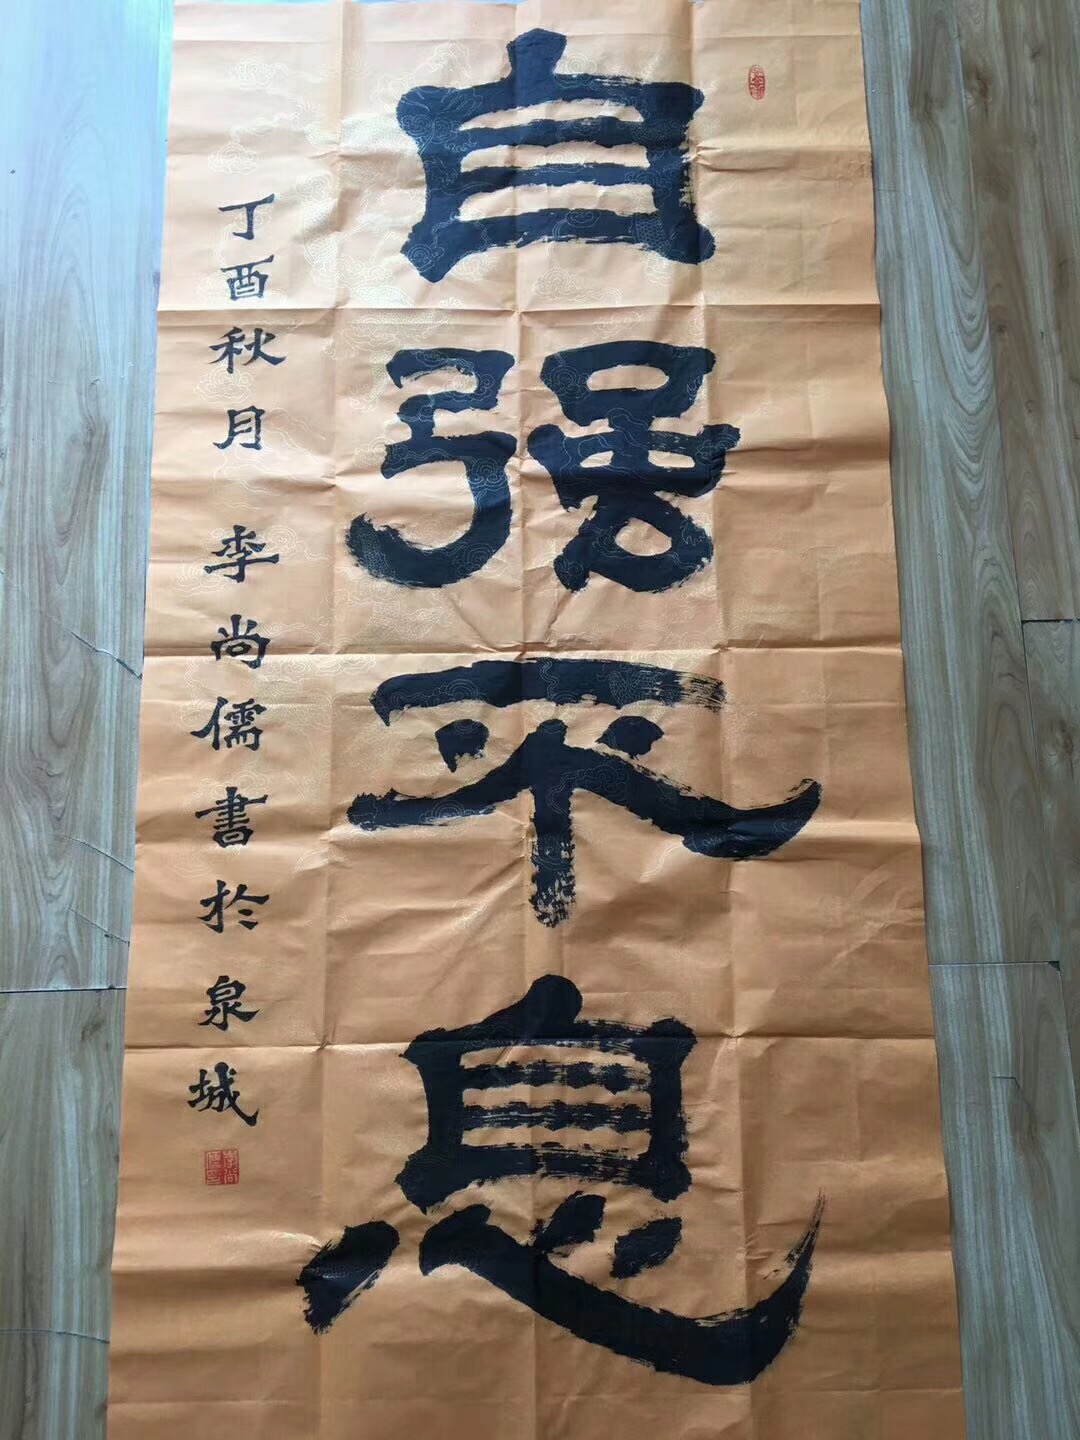 自强不息
丁酉秋月 李尚儒書於泉城